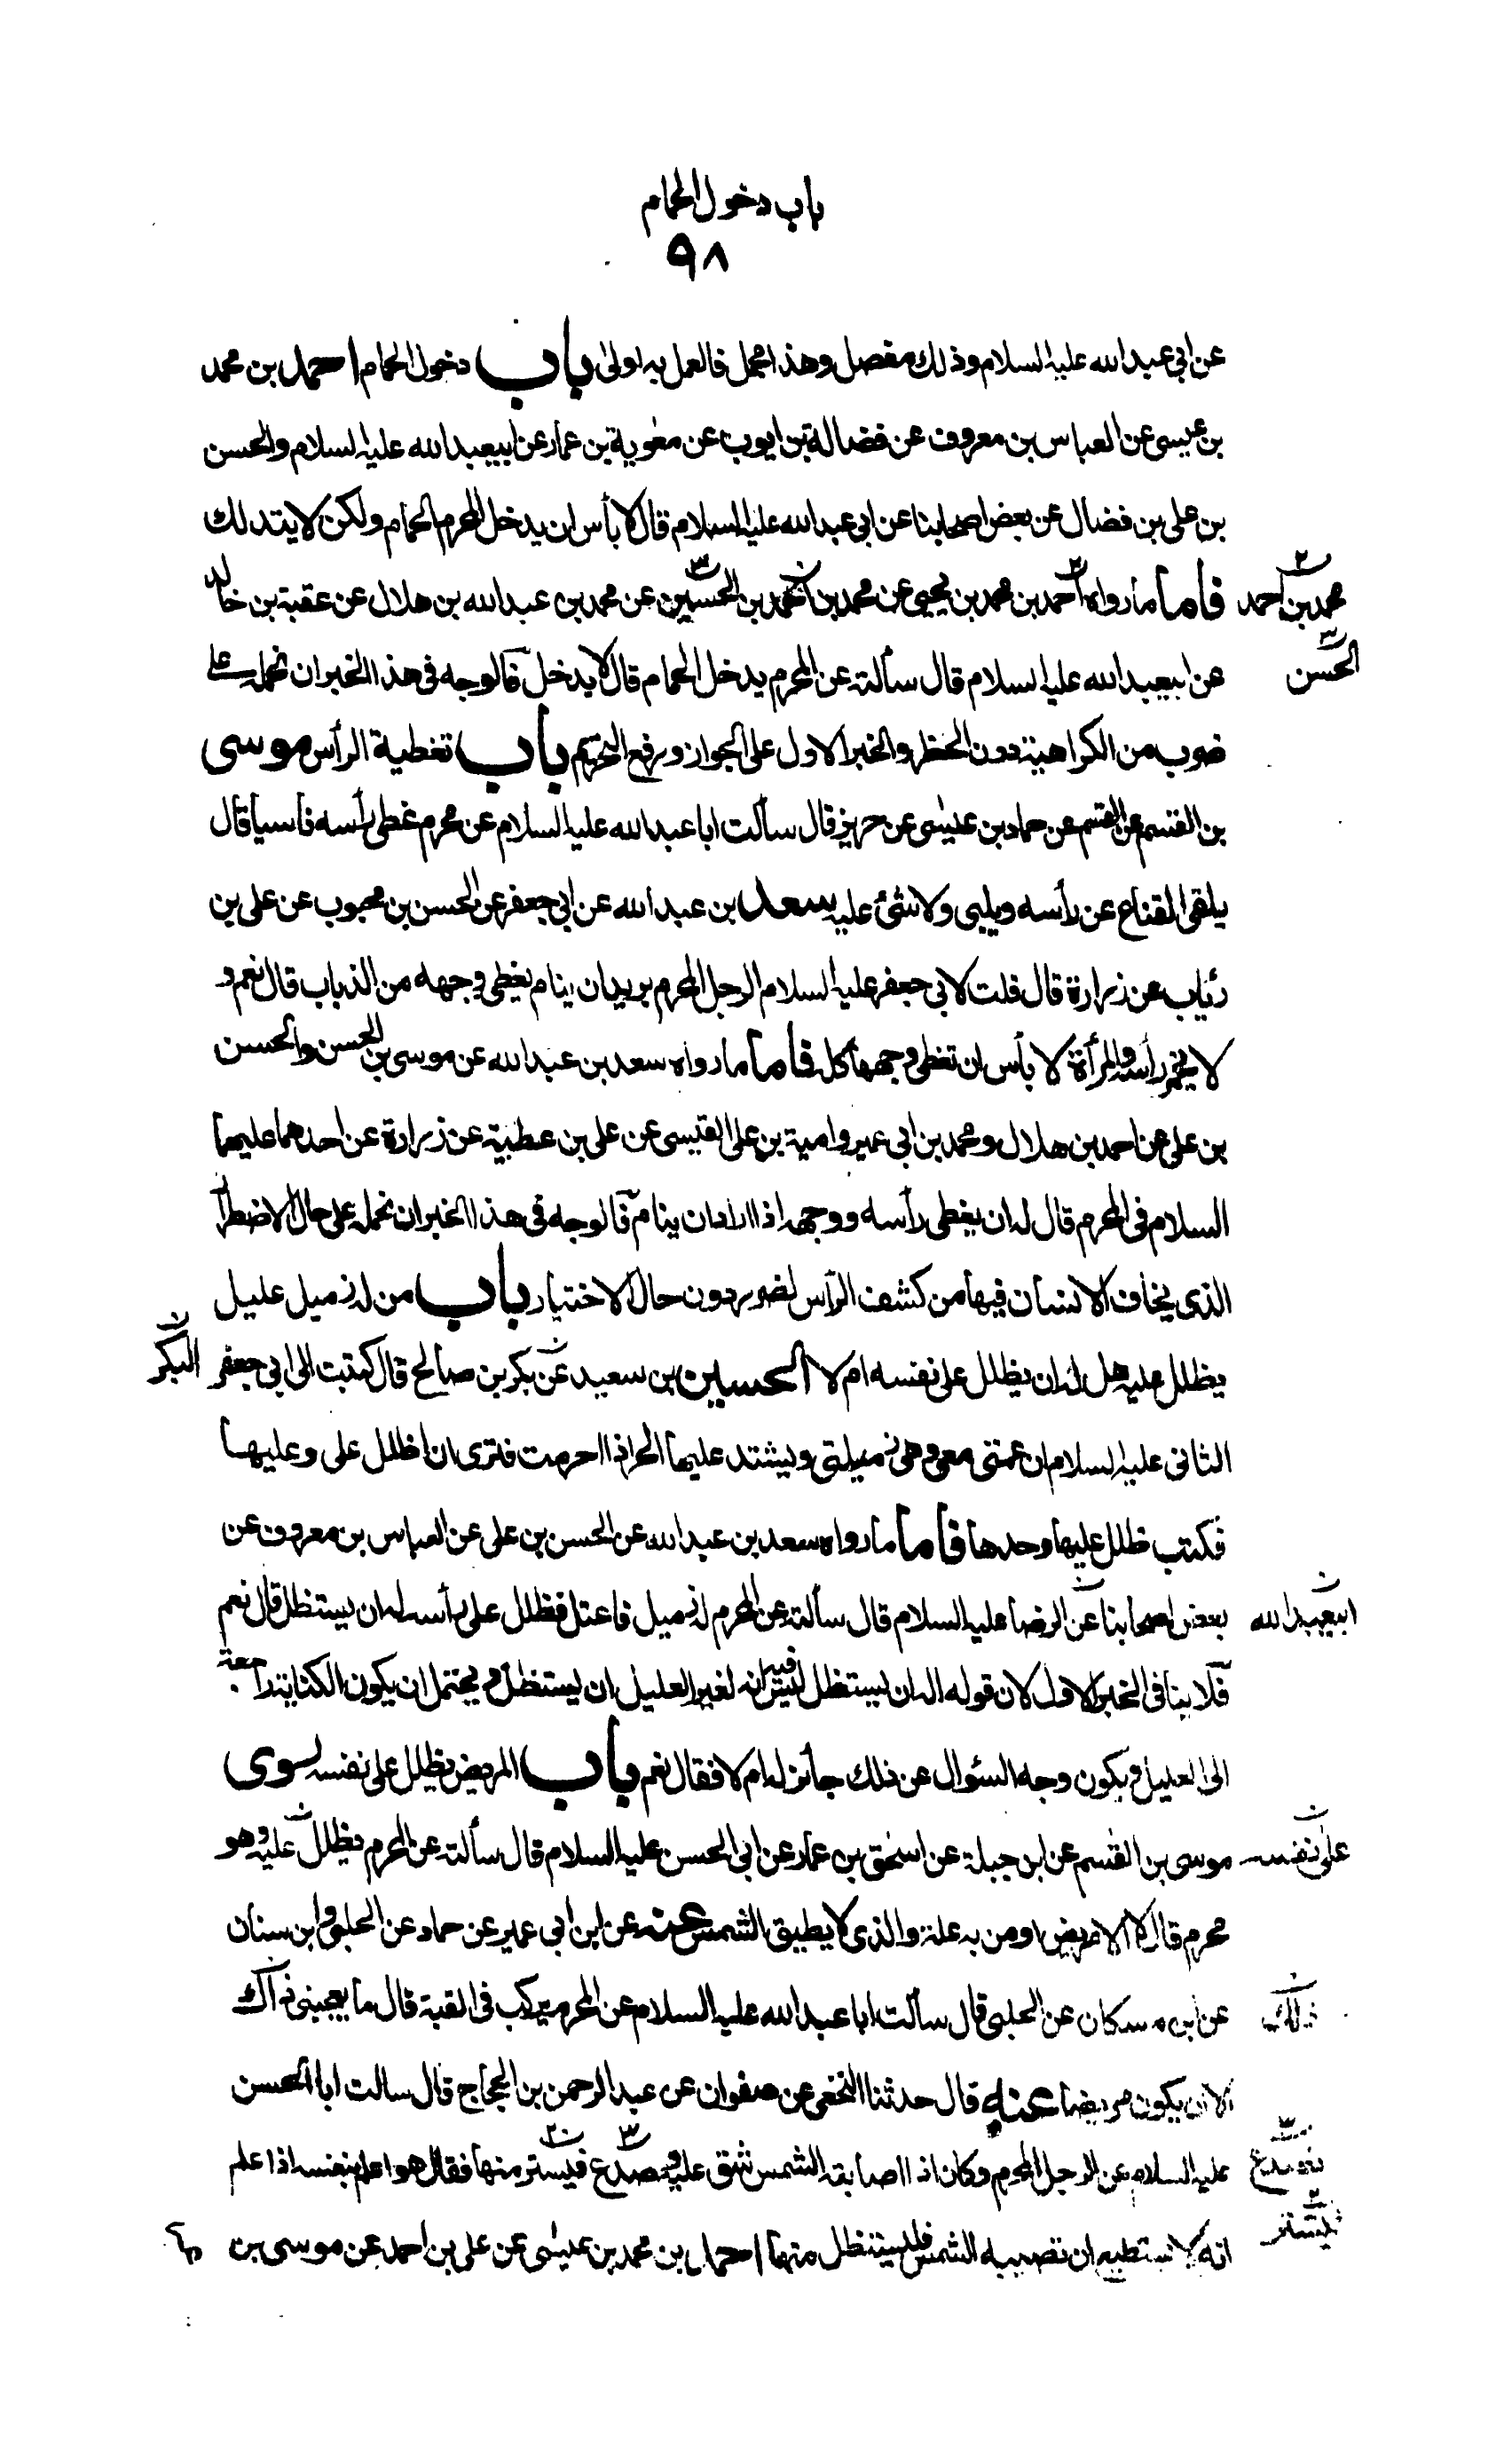 باب دخول الحمام
٩٨
عن ابي عبد الله عليه السلام وذلك مفصل وهذا مجمل فالعمل به اولى باب دخول الحمام احمد بن محمد
بن عيسى عن العباس بن معروف عن فضالة بن ايوب عن معوية بن عمار عن ابيعبد الله عليه السلام والحسن
بن علي بن فضال عن بعض اصحابنا عن ابي عبد الله عليه السلام قال لا بأس ان يدخل المحرم الحمام ولكن لا يتدلك
محمد بن احمد فاما ما رواه احمد بن محمد بن يحيى عن محمد بن احمد بن الحسين عن محمد بن عبد الله بن هلال عن عقبة بن خالد
الحسن
عن ابيعبد الله عليه السلام قال سألته عن المحرم يدخل الحمام قال لا يدخل فالوجه في هذا الخبر ان نحمله على
ضرب من الكراهية دون الحظر والخبر الاول على الجواز ورفع التحريم باب تغطية الرأس موسى
بن القسم عن القسم عن حماد بن عيسى عن حريز قال سألت ابا عبد الله عليه السلام عن محرم غطى رأسه ناسيا قال
يلقي القناع عن رأسه ويلبي ولا شئ عليه سعد بن عبد الله عن ابي جعفر عن الحسن بن محبوب عن علي بن
رئاب عن زرارة قال قلت لابي جعفر عليه السلام الرجل المحرم يريد ان ينام يغطي وجهه من الذباب قال نعم و
لا يخمر رأسه والمرأة لا بأس ان تغطي وجهها كله فاما ما رواه سعد بن عبد الله عن موسى بن الحسن والحسن
بن علي عن احمد بن هلال ومحمد بن ابي عمير وامية بن علي القيسي عن علي بن عطية عن زرارة عن احدهما عليهما
السلام في المحرم قال له ان يغطي رأسه ووجهه اذا اراد ان ينام فالوجه في هذا الخبر ان نحمله على حال الاضطرار
الذي يخاف الانسان فيها من كشف الرأس لضرر دون حال الاختيار باب من له زميل عليل
يظلل عليه هل له ان يظلل على نفسه ام لا الحسين بن سعيد عن بكر بن صالح قال كتبت الى ابي جعفر البكر
الثاني عليه السلام ان عمتي معي وهي زميلتي ويشتد عليها الحر اذا احرمت فترى ان اظلل علي وعليها
فكتب ظلل عليها وحدها فاما ما رواه سعد بن عبد الله عن الحسن بن علي عن العباس بن معروف عن
ابيعبد الله بعض اصحابنا عن الرضا عليه السلام قال سألته عن المحرم له زميل فاعتل فظلل على رأسه له ان يستظل قال نعم
فلا ينافي الخبر الاول لان قوله اله ان يستظل ليس فيه انه لغير العليل ان يستظل ويحتمل ان يكون الكناية راجعة
الى العليل ويكون وجه السؤال عن ذلك جائز له ام لا فقال نعم باب المريض يظلل على نفسه سوى
على نفسه موسى بن القسم عن ابن جبلة عن اسحق بن عمار عن ابي الحسن عليه السلام قال سألته عن المحرم يظلل عليه وهو
محرم قال لا الا مريض او من به علة والذي لا يطيق الشمس عنه عن ابن ابي عمير عن حماد عن الحلبي وابن سنان
ذلك عن ابن مسكان عن الحلبي قال سألت ابا عبد الله عليه السلام عن المحرم يركب في القبة قال ما يعجبني ذاك
الا ان يكون مريضا عنه قال حدثنا النخعي عن صفوان عن عبد الرحمن بن الحجاج قال سالت ابا الحسن
عليه السلام عن الرجل المحرم وكان اذا اصابته الشمس شق عليه وصدع فيستتر منها فقال هو اعلم بنفسه اذا علم
انه لا يستطيع ان تصيبه الشمس فليستظل منها احمد بن محمد بن عيسى عن علي بن احمد عن موسى بن